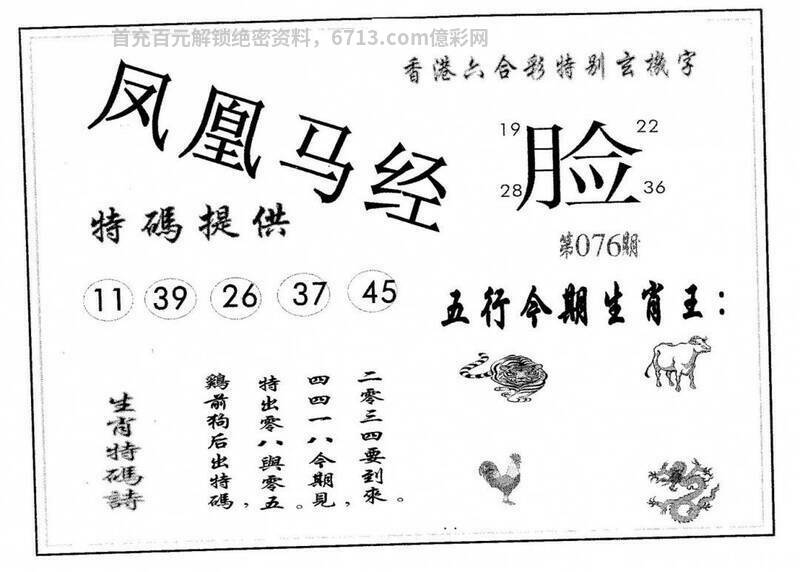 首充百元解锁绝密资料，6713.com億彩网
香港六合彩特别玄機字
凤凰马经
19 22
脸
28 36
特碼提供
第076期
11 39 26 37 45
五行今期生肖王：
生肖特碼詩
鷄前狗后出特碼，
特出零八與零五。
四四一八今期見，
二零三四要到來。